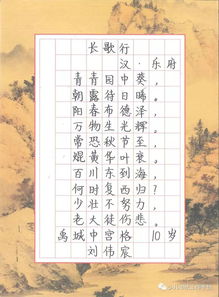 长歌行
汉·乐府
青青园中葵，
朝露待日晞。
阳春布德泽，
万物生光辉。
常恐秋节至，
焜黄华叶衰。
百川东到海，
何时复西归？
少壮不努力，
老大徒伤悲。
禹城中宫格 10岁
刘伟宸